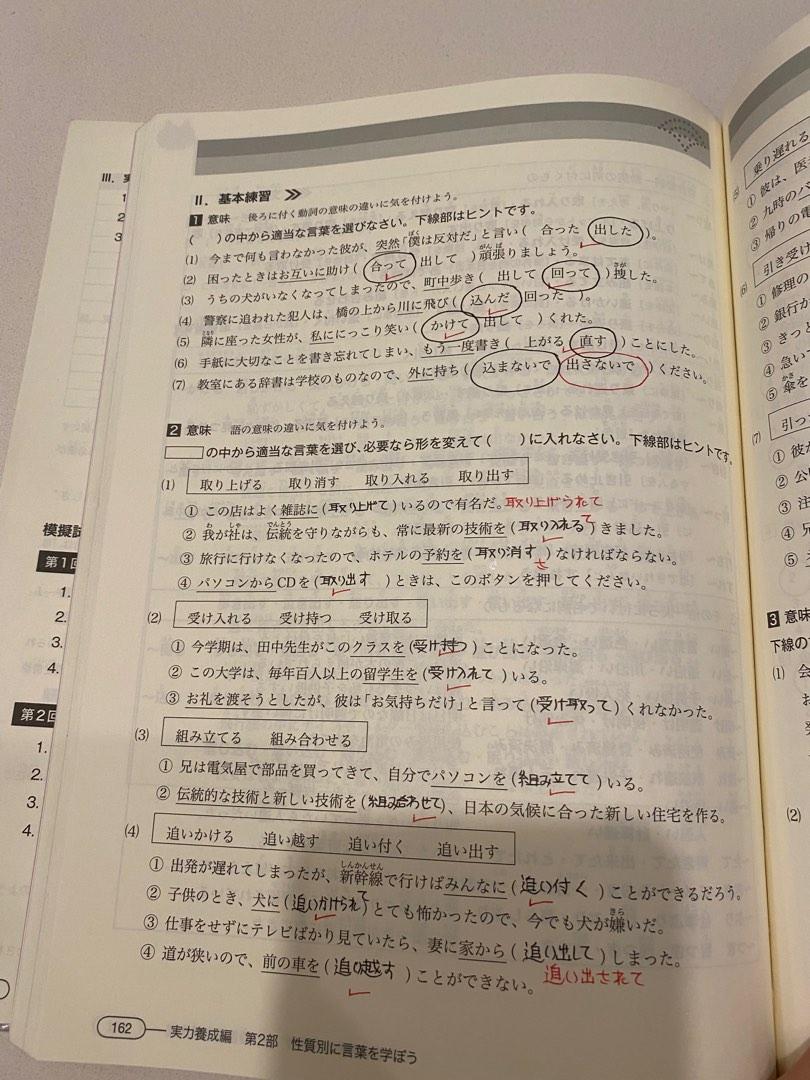 II. 基本練習
1 意味 後ろに付く動詞の意味の違いに気を付けよう。
( )の中から適当な言葉を選びなさい。下線部はヒントです。
(1) 今まで何も言わなかった彼が、突然「僕は反対だ」と言い( 合った 出した )。
(2) 困ったときはお互いに助け( 合って 出して )頑張りましょう。
(3) うちの犬がいなくなってしまったので、町中歩き( 出して 回って )捜した。
(4) 警察に追われた犯人は、橋の上から川に飛び( 込んだ 回った )。
(5) 隣に座った女性が、私ににっこり笑い( かけて 出して )くれた。
(6) 手紙に大切なことを書き忘れてしまい、もう一度書き( 上がる 直す )ことにした。
(7) 教室にある辞書は学校のものなので、外に持ち( 込まないで 出さないで )ください。
2 意味 語の意味の違いに気を付けよう。
の中から適当な言葉を選び、必要なら形を変えて( )に入れなさい。下線部はヒントです。
(1) 取り上げる 取り消す 取り入れる 取り出す
① この店はよく雑誌に(取り上げて)いるので有名だ。取り上げられて
② 我が社は、伝統を守りながらも、常に最新の技術を(取り入れるて)きました。
③ 旅行に行けなくなったので、ホテルの予約を(取り消す さ)なければならない。
④ パソコンからCDを(取り出す)ときは、このボタンを押してください。
(2) 受け入れる 受け持つ 受け取る
① 今学期は、田中先生がこのクラスを(受け持つ)ことになった。
② この大学は、毎年百人以上の留学生を(受け入れて)いる。
③ お礼を渡そうとしたが、彼は「お気持ちだけ」と言って(受け取って)くれなかった。
(3) 組み立てる 組み合わせる
① 兄は電気屋で部品を買ってきて、自分でパソコンを(組み立てて)いる。
② 伝統的な技術と新しい技術を(組み合わせて)、日本の気候に合った新しい住宅を作る。
(4) 追いかける 追い越す 追い付く 追い出す
① 出発が遅れてしまったが、新幹線で行けばみんなに(追い付く)ことができるだろう。
② 子供のとき、犬に(追いかけられて)とても怖かったので、今でも犬が嫌いだ。
③ 仕事をせずにテレビばかり見ていたら、妻に家から(追い出して)しまった。
追い出されて
④ 道が狭いので、前の車を(追い越す)ことができない。
162 実力養成編 第2部 性質別に言葉を学ぼう
III. 実
1
2
3
模擬試
第1回
1.
2.
3.
4.
第2回
1.
2.
3.
4.
乗り遅れる
① 彼は、医
② 九時のバ
③ 帰りの電
(6) 引き受け
① 修理の
② 銀行か
③ きっと
④ 急い
⑤ 傘を
(7) 引っ
① 彼が
② 公
③ 注
④ 兄
⑤
3 意味
下線の
(1) 会
お
(2)